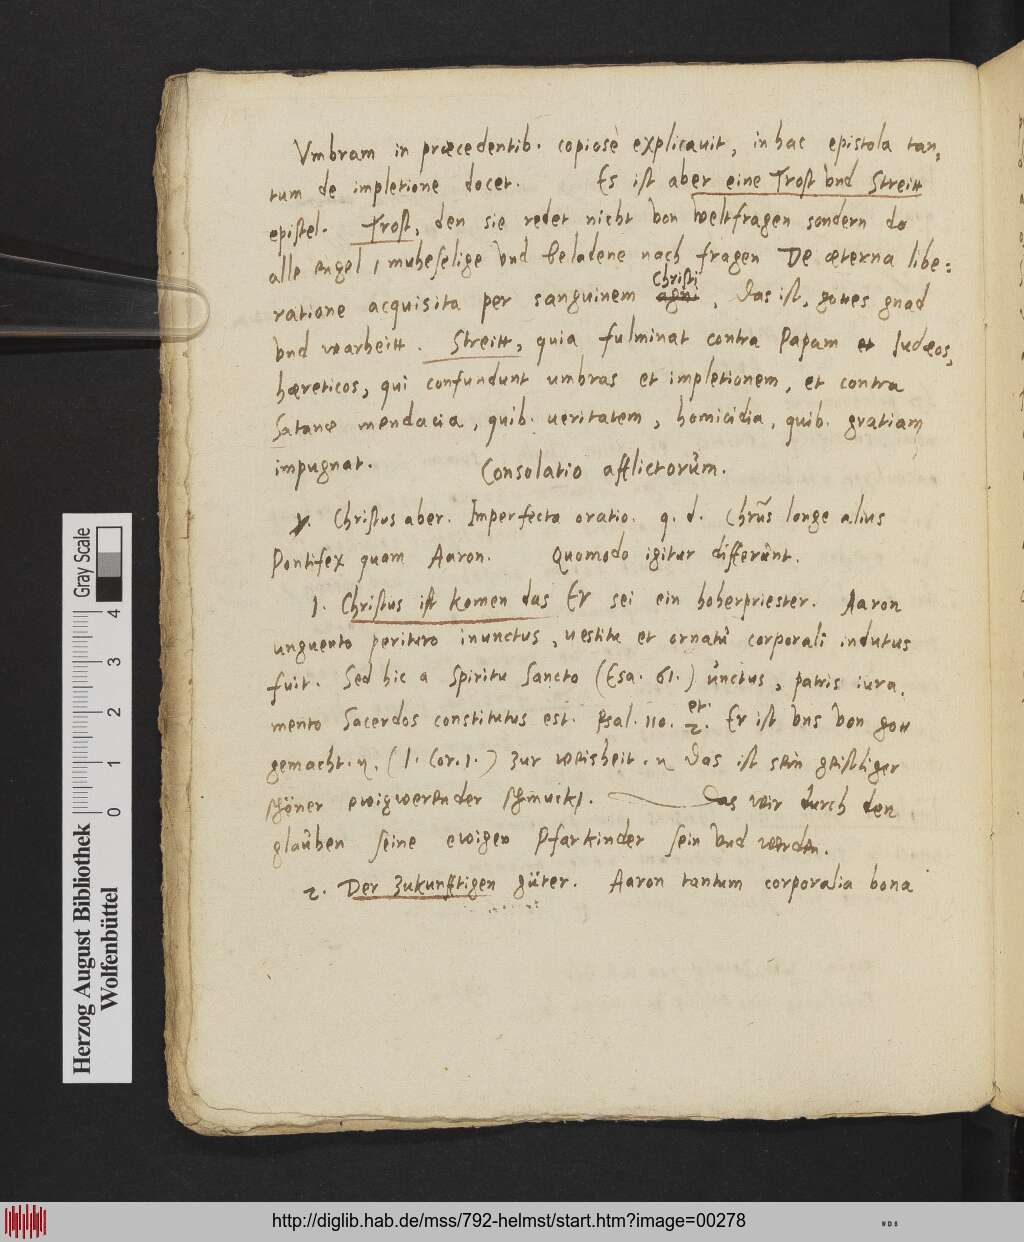 Vmbram in præcedentib. copiosè explicauit, in hac epistola tan,
tum de impletione docet. Es ist aber eine Trost vnd Streitt
epistel. Trost, den sie redet nicht von weltfragen sondern do
alle engel, muheselige vnd beladene nach fragen De æterna libe:
ratione acquisita per sanguinem Christi, Das ist, gottes gnad
vnd warheitt. Streitt, quia fulminat contra Papam et Iudæos,
hæreticos, qui confundunt umbras et impletionem, et contra
Satanæ mendacia, quib. ueritatem, homicidia, quib. gratiam
impugnat. Consolatio afflictorum.
Christus aber. Imperfecta oratio. q. d. Chrus longe alius
Pontifex quam Aaron. Quomodo igitur differunt.
1. Christus ist komen das Er sei ein hoherpriester. Aaron
unguento perituro inunctus, uestitu et ornatu corporali indutus
fuit. Sed hic a Spiritu Sancto (Esa. 61.) unctus, patris iura,
mento Sacerdos constitutus est. Psal. 110. et 2. Er ist vns von gott
gemacht. (1. Cor. 1.) zur weisheit. Das ist sein geistliger
schöner ewigwerender schmuck. Das wir durch den
glauben seine ewigen Pfarkinder sein vnd werden.
2. Der zukunfftigen güter. Aaron tantum corporalia bona
Herzog August Bibliothek
Wolfenbüttel
Gray Scale
0 1 2 3 4
http://diglib.hab.de/mss/792-helmst/start.htm?image=00278